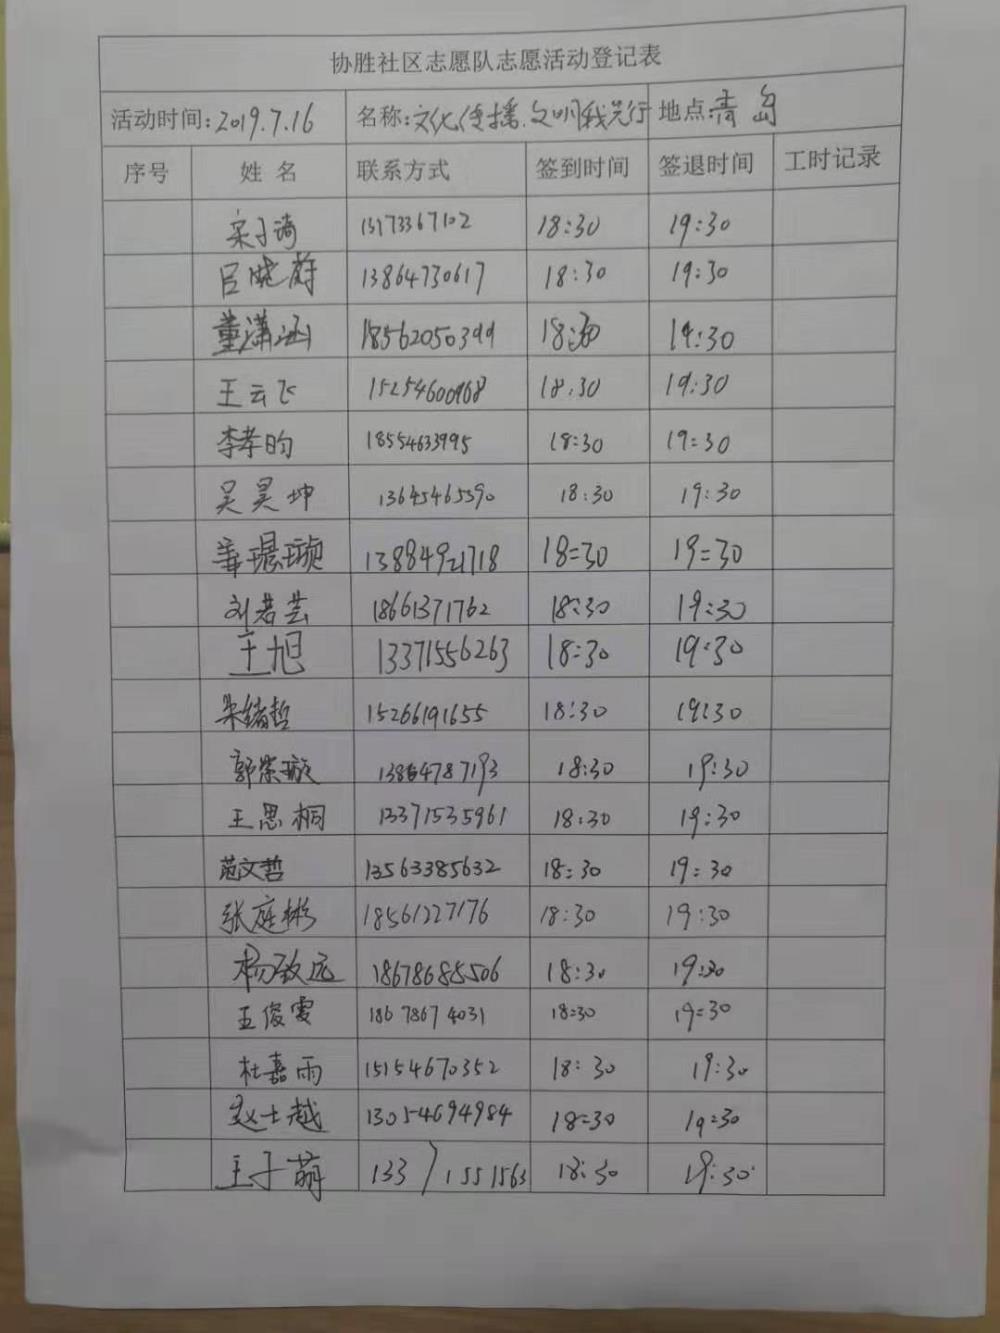 协胜社区志愿队志愿活动登记表
活动时间:2019.7.16 名称:文化传播.文明我先行 地点:青岛
序号 姓名 联系方式 签到时间 签退时间 工时记录
宋子琦 13173367102 18:30 19:30
吕晓蔚 13864730617 18:30 19:30
董潇涵 18562050399 18:30 19:30
王云飞 15254600968 18:30 19:30
李孝昀 18554633995 18:30 19:30
吴昊坤 13645465590 18:30 19:30
13884921718 18:30 19:30
刘若芸 18661371762 18:30 19:30
王旭 13371556263 18:30 19:30
朱绪哲 15266191655 18:30 19:30
郭崇璇 13864787193 18:30 19:30
王思桐 13371535961 18:30 19:30
范文哲 13563385632 18:30 19:30
张庭彬 18561227176 18:30 19:30
杨致远 18678685506 18:30 19:30
王俊雯 18678674031 18:30 19:30
杜嘉雨 15154670352 18:30 19:30
赵士越 13054694984 18:30 19:30
王子萌 13371551563 18:30 19:30